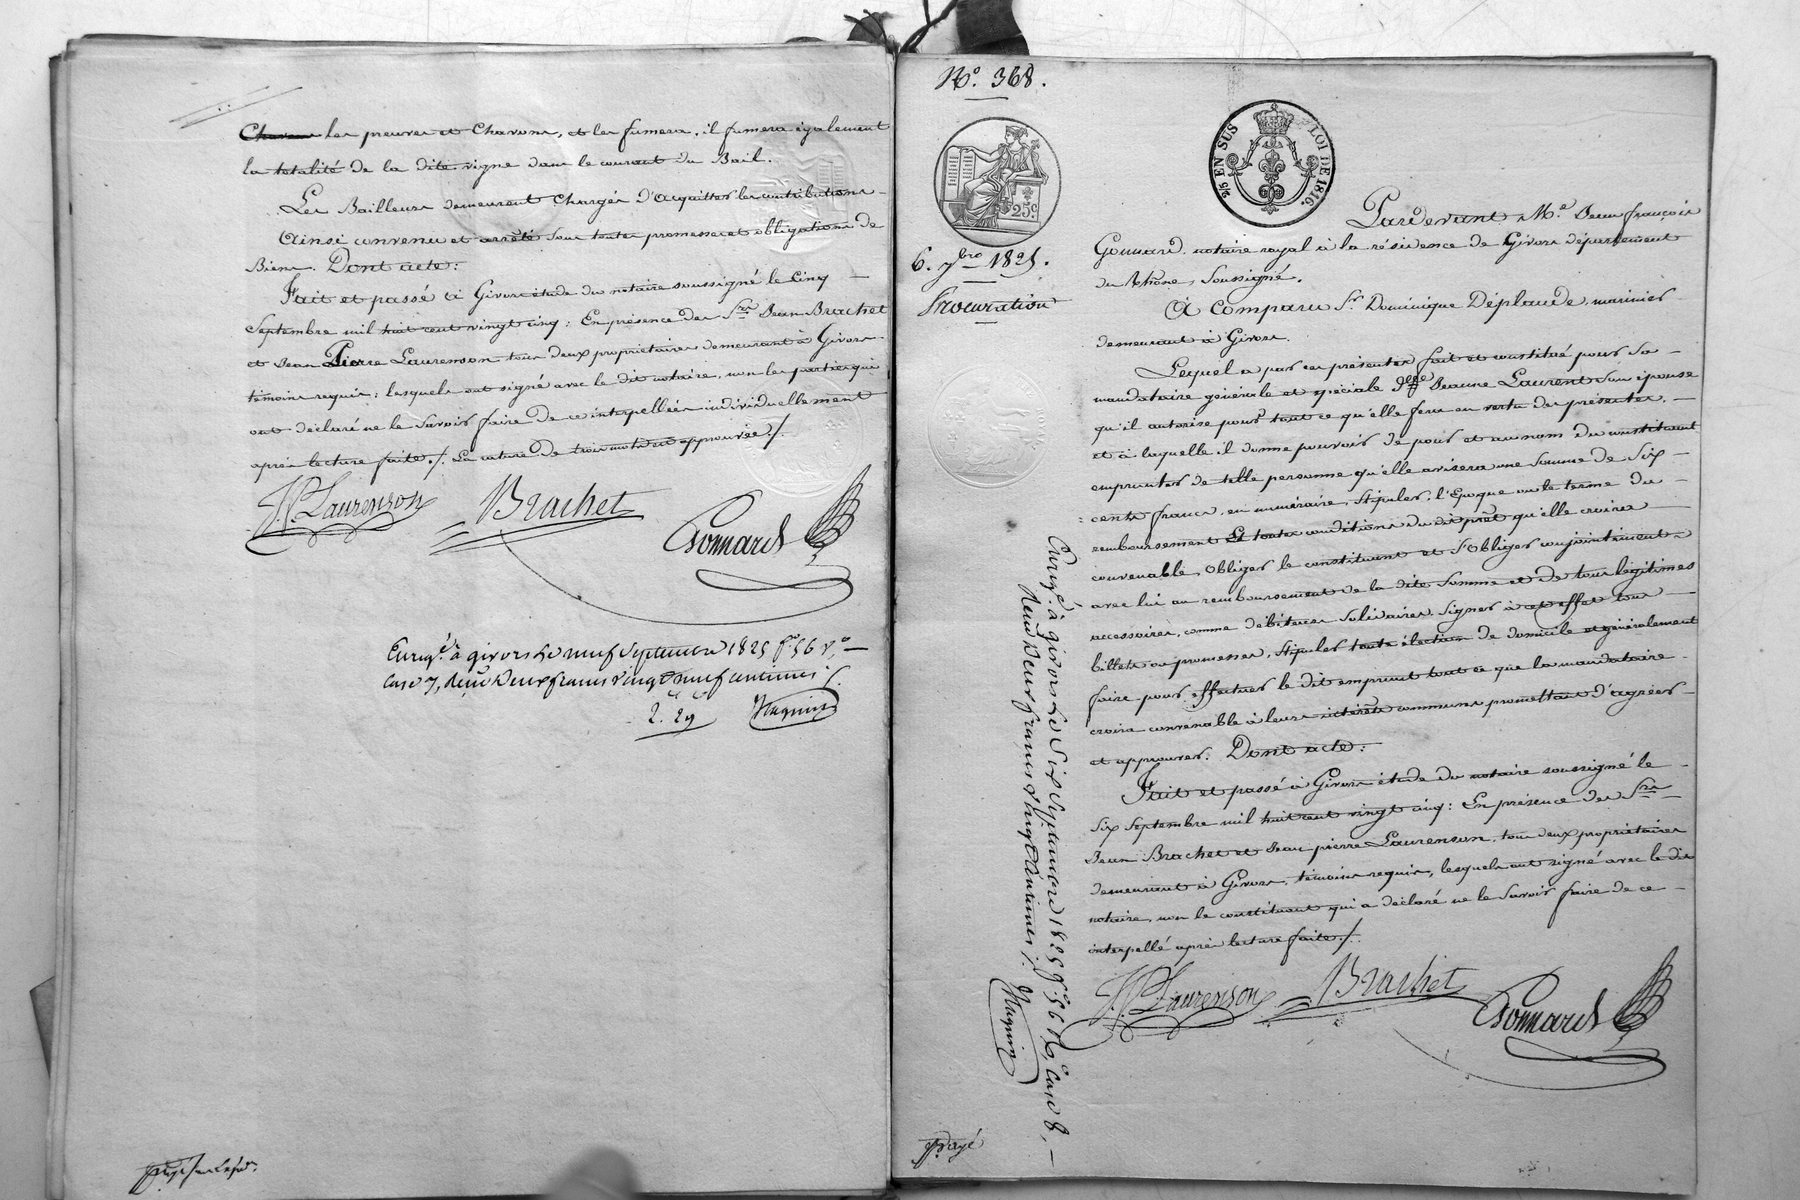 les preuves et Chavons, et les fumera, il fumera également
la totalité de la dite vigne dans le courant du Bail.
Les Bailleurs demeurent Chargés d'acquitter les contributions
Ainsi convenu et arrêté sous toutes promesses et obligations de
Biens. Dont acte:
Fait et passé à Givors étude du notaire soussigné le Cinq
Septembre mil huit cent vingt cinq: En présence des Srs Jean Brachet
et Jean Pierre Laurenson tous deux propriétaires demeurant à Givors
témoins requis: lesquels ont signé avec le dit notaire, non les parties qui
ont déclaré ne le savoir faire de ce interpellées individuellement
après lecture faite./. La rature de trois mots est approuvée./.
JP. Laurenson Brachet Gonnard
Enregé à givors le neuf Septembre 1825 f° 56 v°,
case 7, Reçu Deux francs vingt neuf centimes
2. 29
N° 368.
25c
6. 7bre 1825.
Procuration
2/5 EN SUS LOI DE 1816.
Pardevant Me Jean françois
Gonnard, notaire royal à la résidence de Givors département
du Rhône, soussigné.
A Comparu Sr Dominique Déplaude, marinier
demeurant à Givors.
Lequel a par ces présentes fait et constitué pour sa
mandataire générale et spéciale dlle Jeanne Laurent son épouse
qu'il autorise pour tout ce qu'elle fera en vertu des présentes,
et à laquelle il donne pouvoir de pour et au nom du constituant
emprunter de telle personne qu'elle avisera une somme de Six
cents francs, en numéraire, stipuler l'Epoque ou le terme du
remboursement et toutes conditions du dit prêt qu'elle croira
convenable, obliger le constituant et s'obliger conjointement
avec lui au remboursement de la dite somme et de tous légitimes
accessoires, comme débiteurs solidaires, signer à cet effet tous
billets ou promesses, stipuler toute élection de domicile et généralement
faire pour effectuer le dit emprunt tout ce que la mandataire
croira convenable à leurs intérêts communs promettant d'agréer
et approuver. Dont acte:
Fait et passé à Givors étude du notaire soussigné le
six Septembre mil huit cent vingt cinq: En présence des Srs
Jean Brachet et Jean pierre Laurenson, tous deux propriétaires
demeurant à Givors, témoins requis, lesquels ont signé avec le dit
notaire, non le constituant qui a déclaré ne le savoir faire de ce
interpellé après lecture faite./.
JP. Laurenson Brachet Gonnard
Enregé à givors le Six Septembre 1825 f° 56 V°, case 8,
Reçu Deux francs vingt centimes
Payé